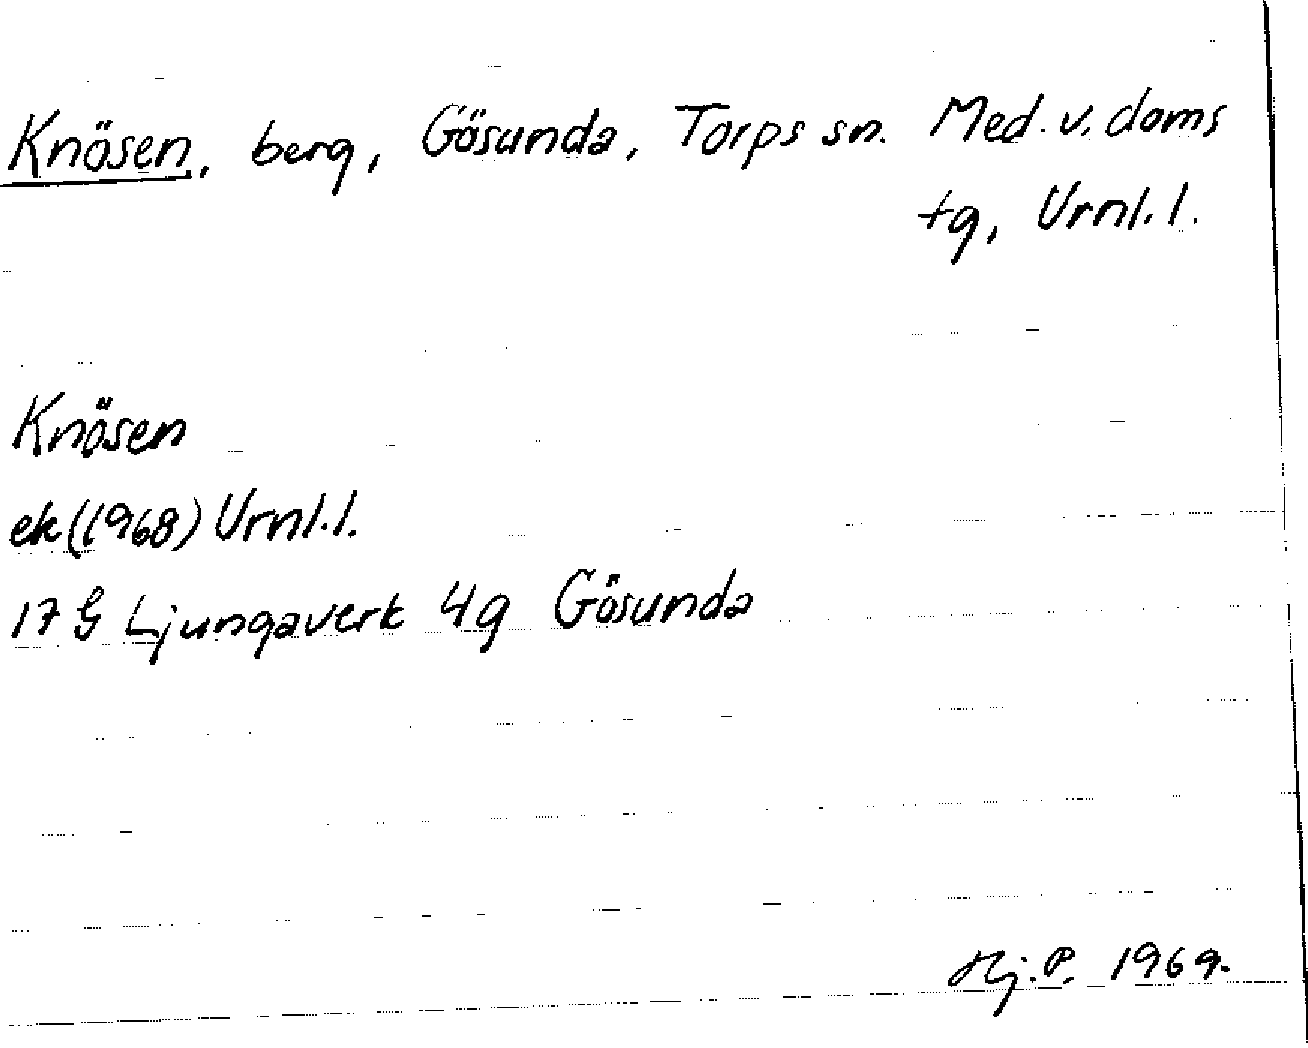 Knösen, berg, Gösunda, Torps sn. Med. v. doms
tg, Vrnl. l.
Knösen
ek (1968) Vrnl. l.
17 G Ljungaverk 4g Gösunda
Hj. P. 1969.